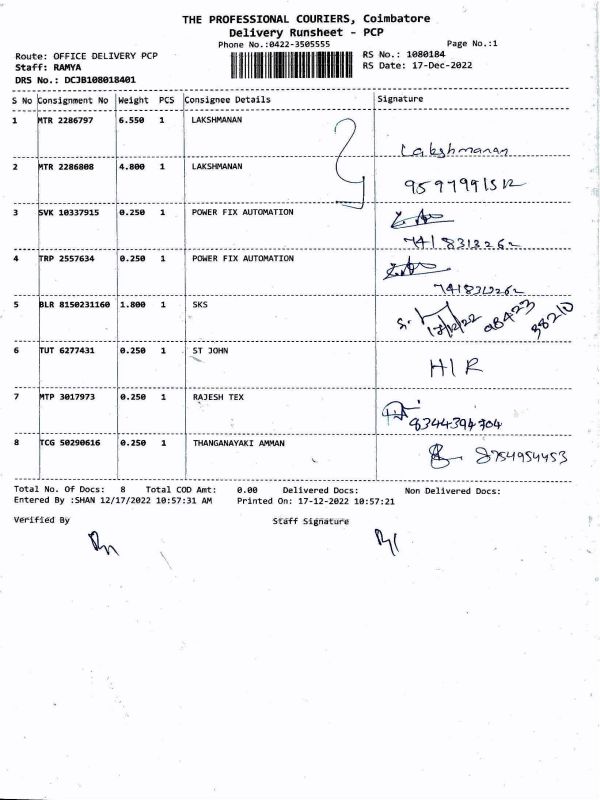 THE PROFESSIONAL COURIERS, Coimbatore
Delivery Runsheet - PCP
Phone No.:0422-3505555 Page No.:1
Route: OFFICE DELIVERY PCP RS No.: 1080184
Staff: RAMYA RS Date: 17-Dec-2022
DRS No.: DCJB108018401
S No Consignment No Weight PCS Consignee Details Signature
1 MTR 2286797 6.550 1 LAKSHMANAN
Lakshmanan
2 MTR 2286808 4.800 1 LAKSHMANAN
3 SVK 10337915 0.250 1 POWER FIX AUTOMATION
7418313262
4 TRP 2557634 0.250 1 POWER FIX AUTOMATION
7418313262
5 BLR 8150231160 1.800 1 SKS
S. 17/12/22 98423 38210
6 TUT 6277431 0.250 1 ST JOHN
H/R
7 MTP 3017973 0.250 1 RAJESH TEX
8344394704
8 TCG 50290616 0.250 1 THANGANAYAKI AMMAN
8754954453
Total No. Of Docs: 8 Total COD Amt: 0.00 Delivered Docs: Non Delivered Docs:
Entered By :SHAN 12/17/2022 10:57:31 AM Printed On: 17-12-2022 10:57:21
Verified By Staff Signature